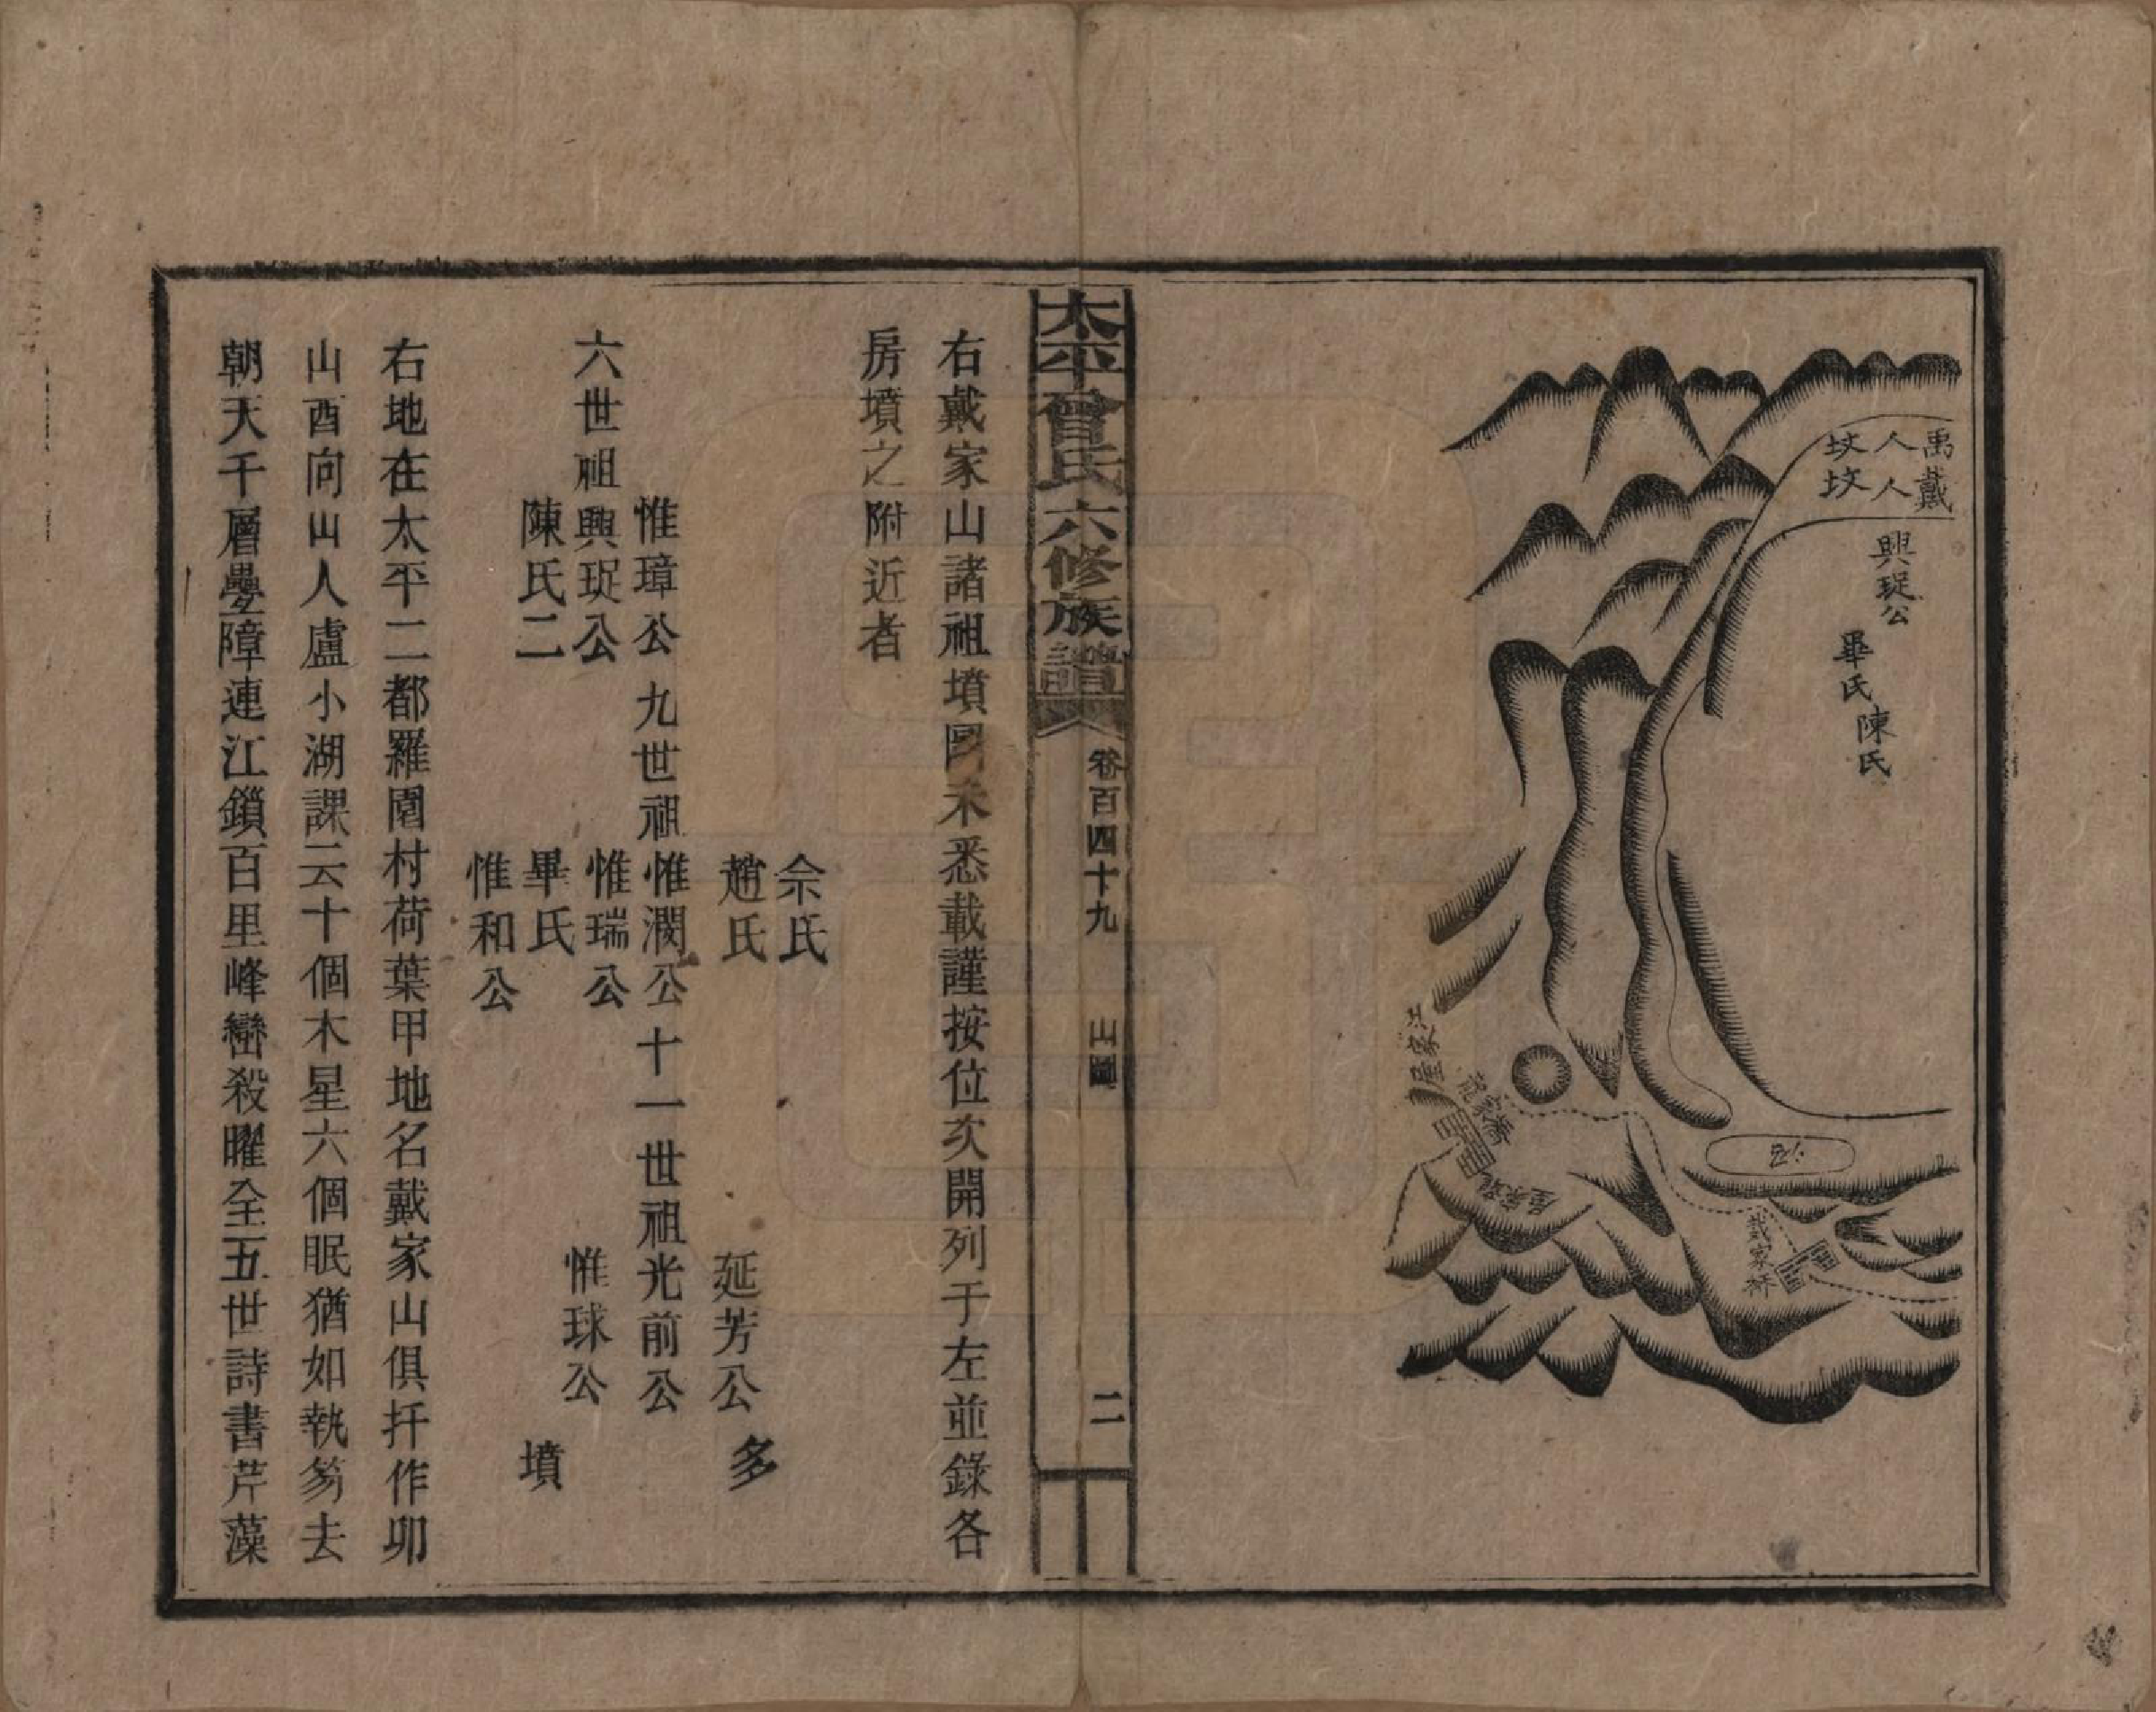 禹人坟
戴人坟
興珽公
畢氏
陳氏
江家屋
龍家橋
戴家桥
太平曾氏六修族譜
卷百四十九
山圖
二
右戴家山諸祖墳圖未悉載謹按位次開列于左並錄各
房墳之附近者
佘氏
趙氏
延芳公
多
惟璋公
九世祖惟潤公
十一世祖光前公
六世祖興珽公
惟瑞公
惟球公
陳氏二
畢氏
墳
惟和公
右地在太平二都羅圍村荷葉甲地名戴家山俱扦作卯
山酉向山人盧小湖課云十個木星六個眠猶如執笏去
朝天千層疊障連江鎖百里峰巒殺曜全五世詩書芹藻